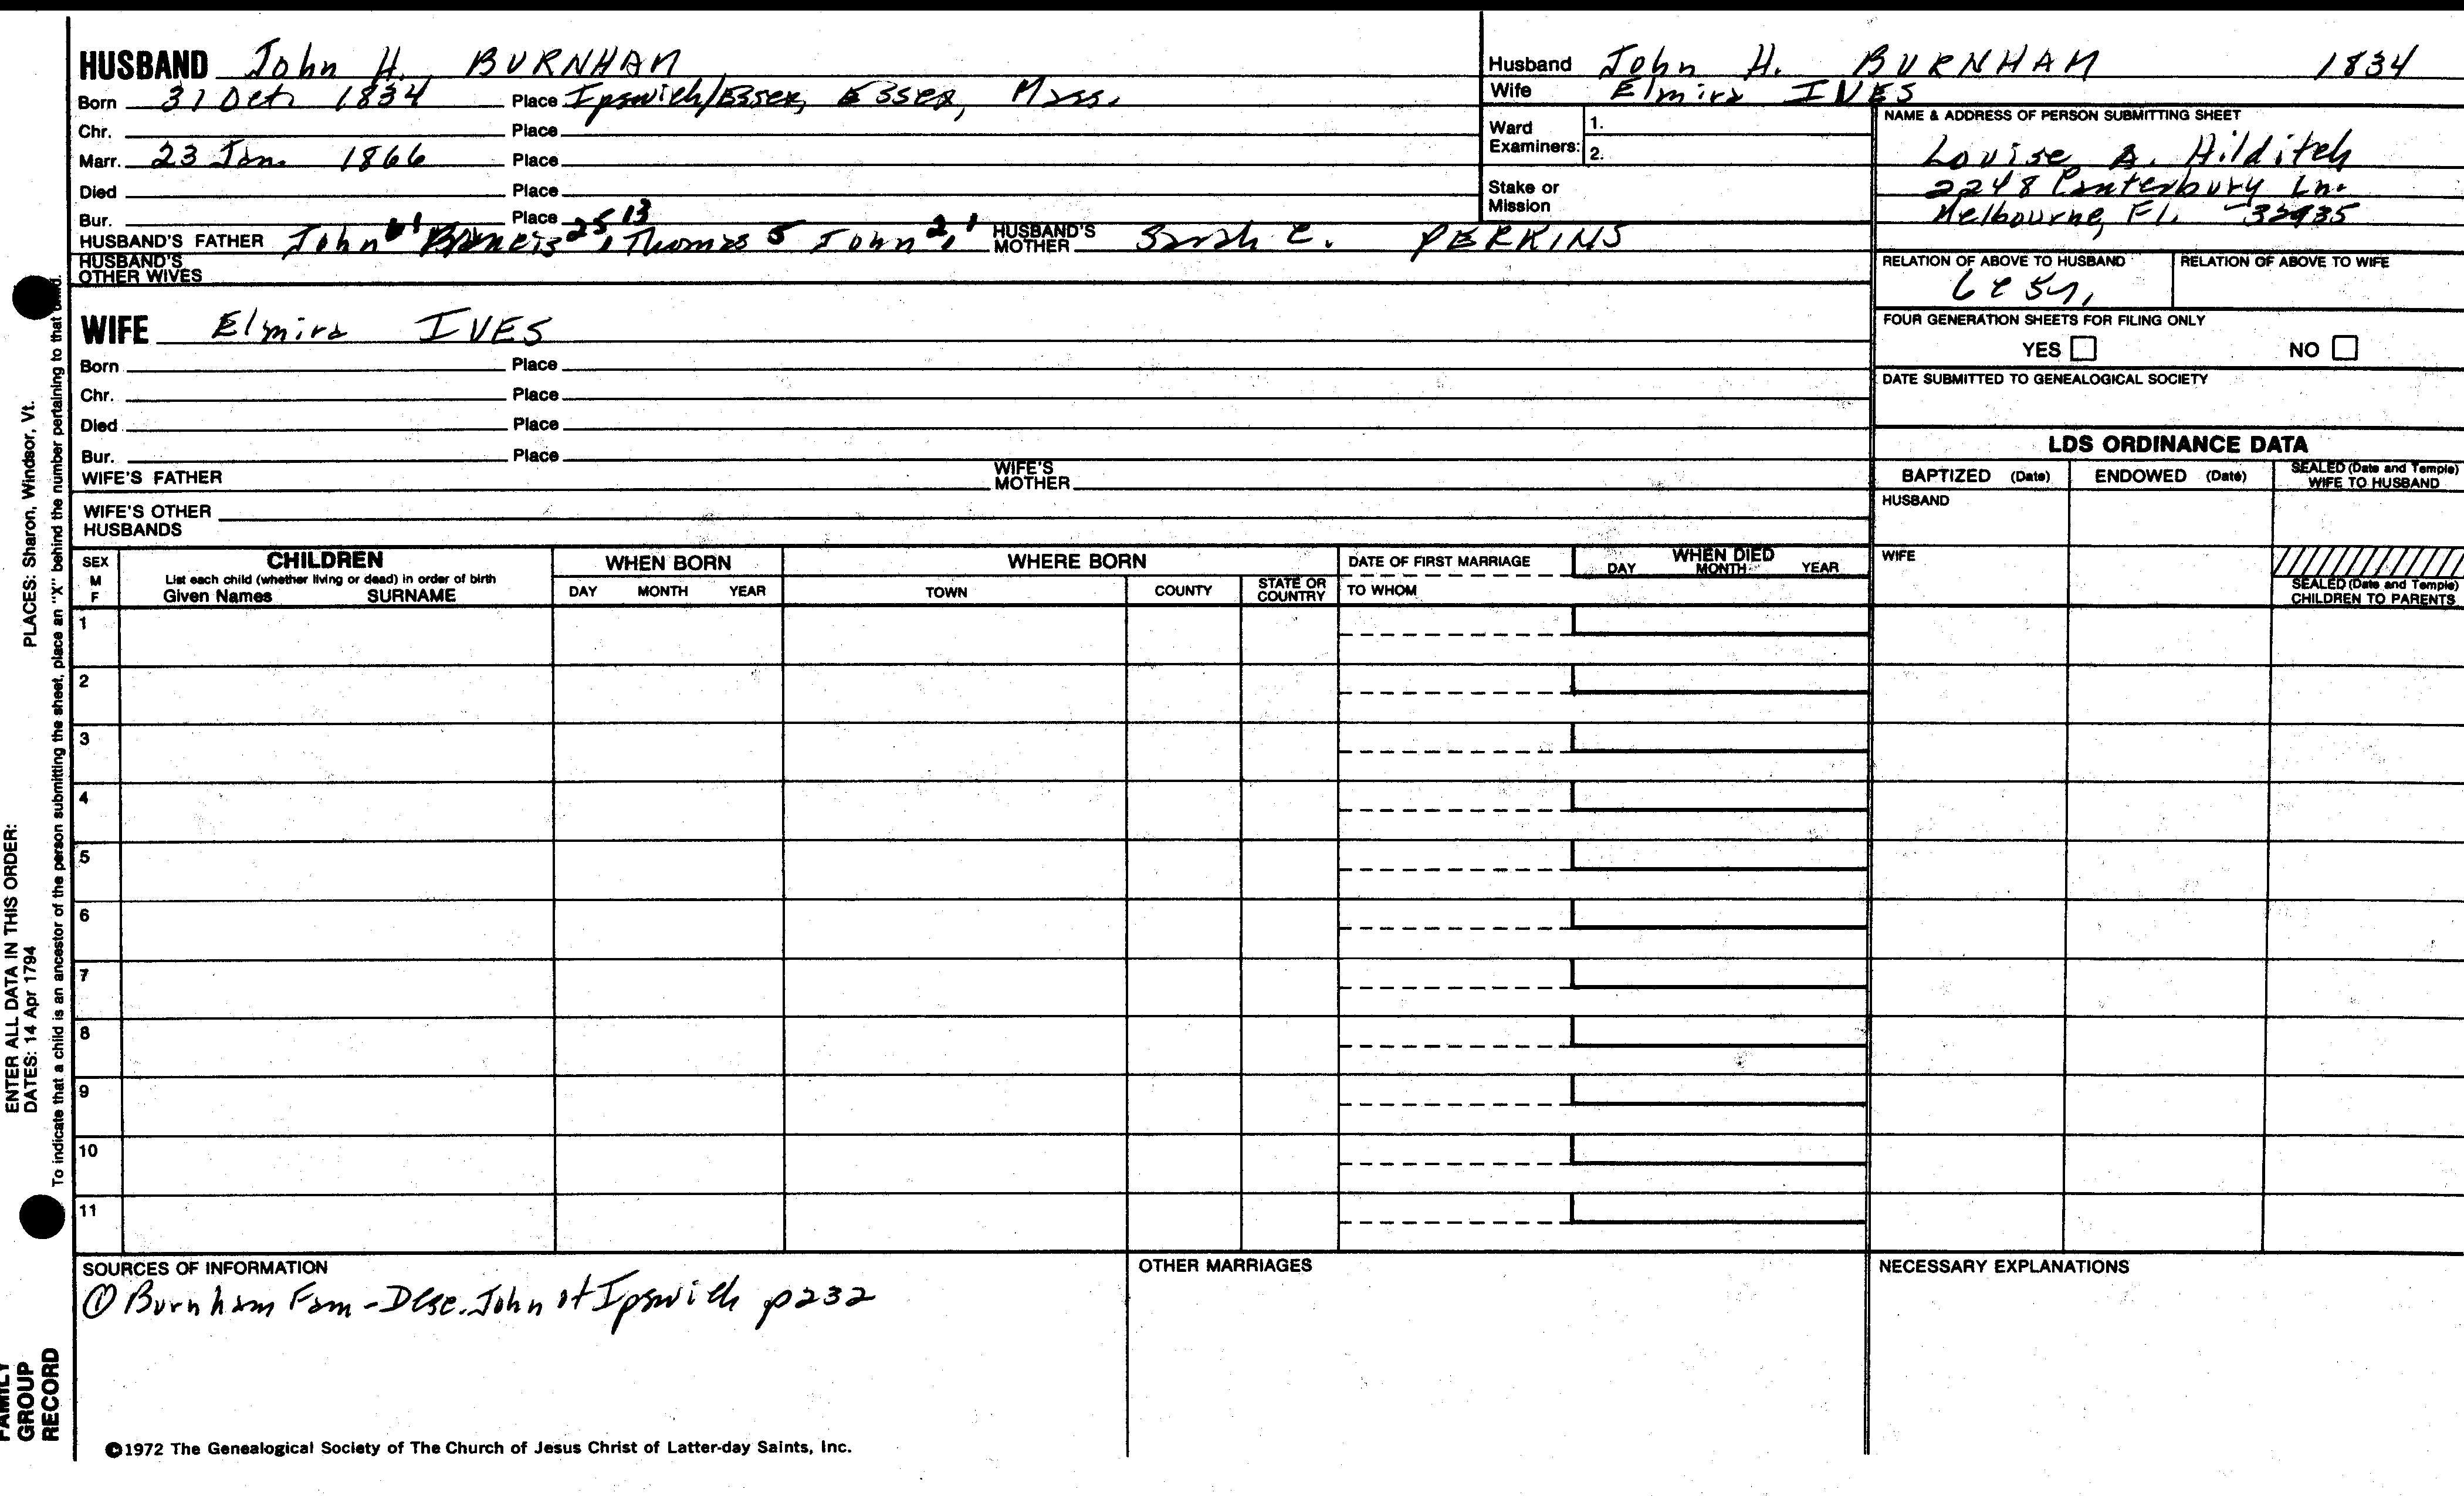 HUSBAND John H. BURNHAM
Born 31 Oct. 1834 Place Ipswich/Essex, Essex, Mass.
Chr. Place
Marr. 23 Jan. 1866 Place
Died Place
Bur. Place
HUSBAND'S FATHER John Francis 25, 13 Thomas 5 John 2, 1 HUSBAND'S MOTHER Sarah C. PERKINS
HUSBAND'S OTHER WIVES
Husband John H. BURNHAM 1834
Wife Elmira IVES
Ward Examiners: 1.
2.
Stake or Mission
NAME & ADDRESS OF PERSON SUBMITTING SHEET
Louise A. Hilditch
2248 Canterbury Ln.
Melbourne, Fl. 32935
RELATION OF ABOVE TO HUSBAND RELATION OF ABOVE TO WIFE
FOUR GENERATION SHEETS FOR FILING ONLY
YES NO
DATE SUBMITTED TO GENEALOGICAL SOCIETY
WIFE Elmira IVES
Born Place
Chr. Place
Died Place
Bur. Place
WIFE'S FATHER WIFE'S MOTHER
WIFE'S OTHER HUSBANDS
LDS ORDINANCE DATA
BAPTIZED (Date) ENDOWED (Date) SEALED (Date and Temple) WIFE TO HUSBAND
HUSBAND
WIFE
SEALED (Date and Temple) CHILDREN TO PARENTS
SEX M F
CHILDREN
List each child (whether living or dead) in order of birth
Given Names SURNAME
WHEN BORN
DAY MONTH YEAR
WHERE BORN
TOWN COUNTY STATE OR COUNTRY
DATE OF FIRST MARRIAGE
TO WHOM
WHEN DIED
DAY MONTH YEAR
1
2
3
4
5
6
7
8
9
10
11
SOURCES OF INFORMATION
① Burnham Fam - Desc. John of Ipswich p232
OTHER MARRIAGES
NECESSARY EXPLANATIONS
©1972 The Genealogical Society of The Church of Jesus Christ of Latter-day Saints, Inc.
FAMILY GROUP RECORD
ENTER ALL DATA IN THIS ORDER:
DATES: 14 Apr 1794
PLACES: Sharon, Windsor, Vt.
To indicate that a child is an ancestor of the person submitting the sheet, place an "X" behind the number pertaining to that child.